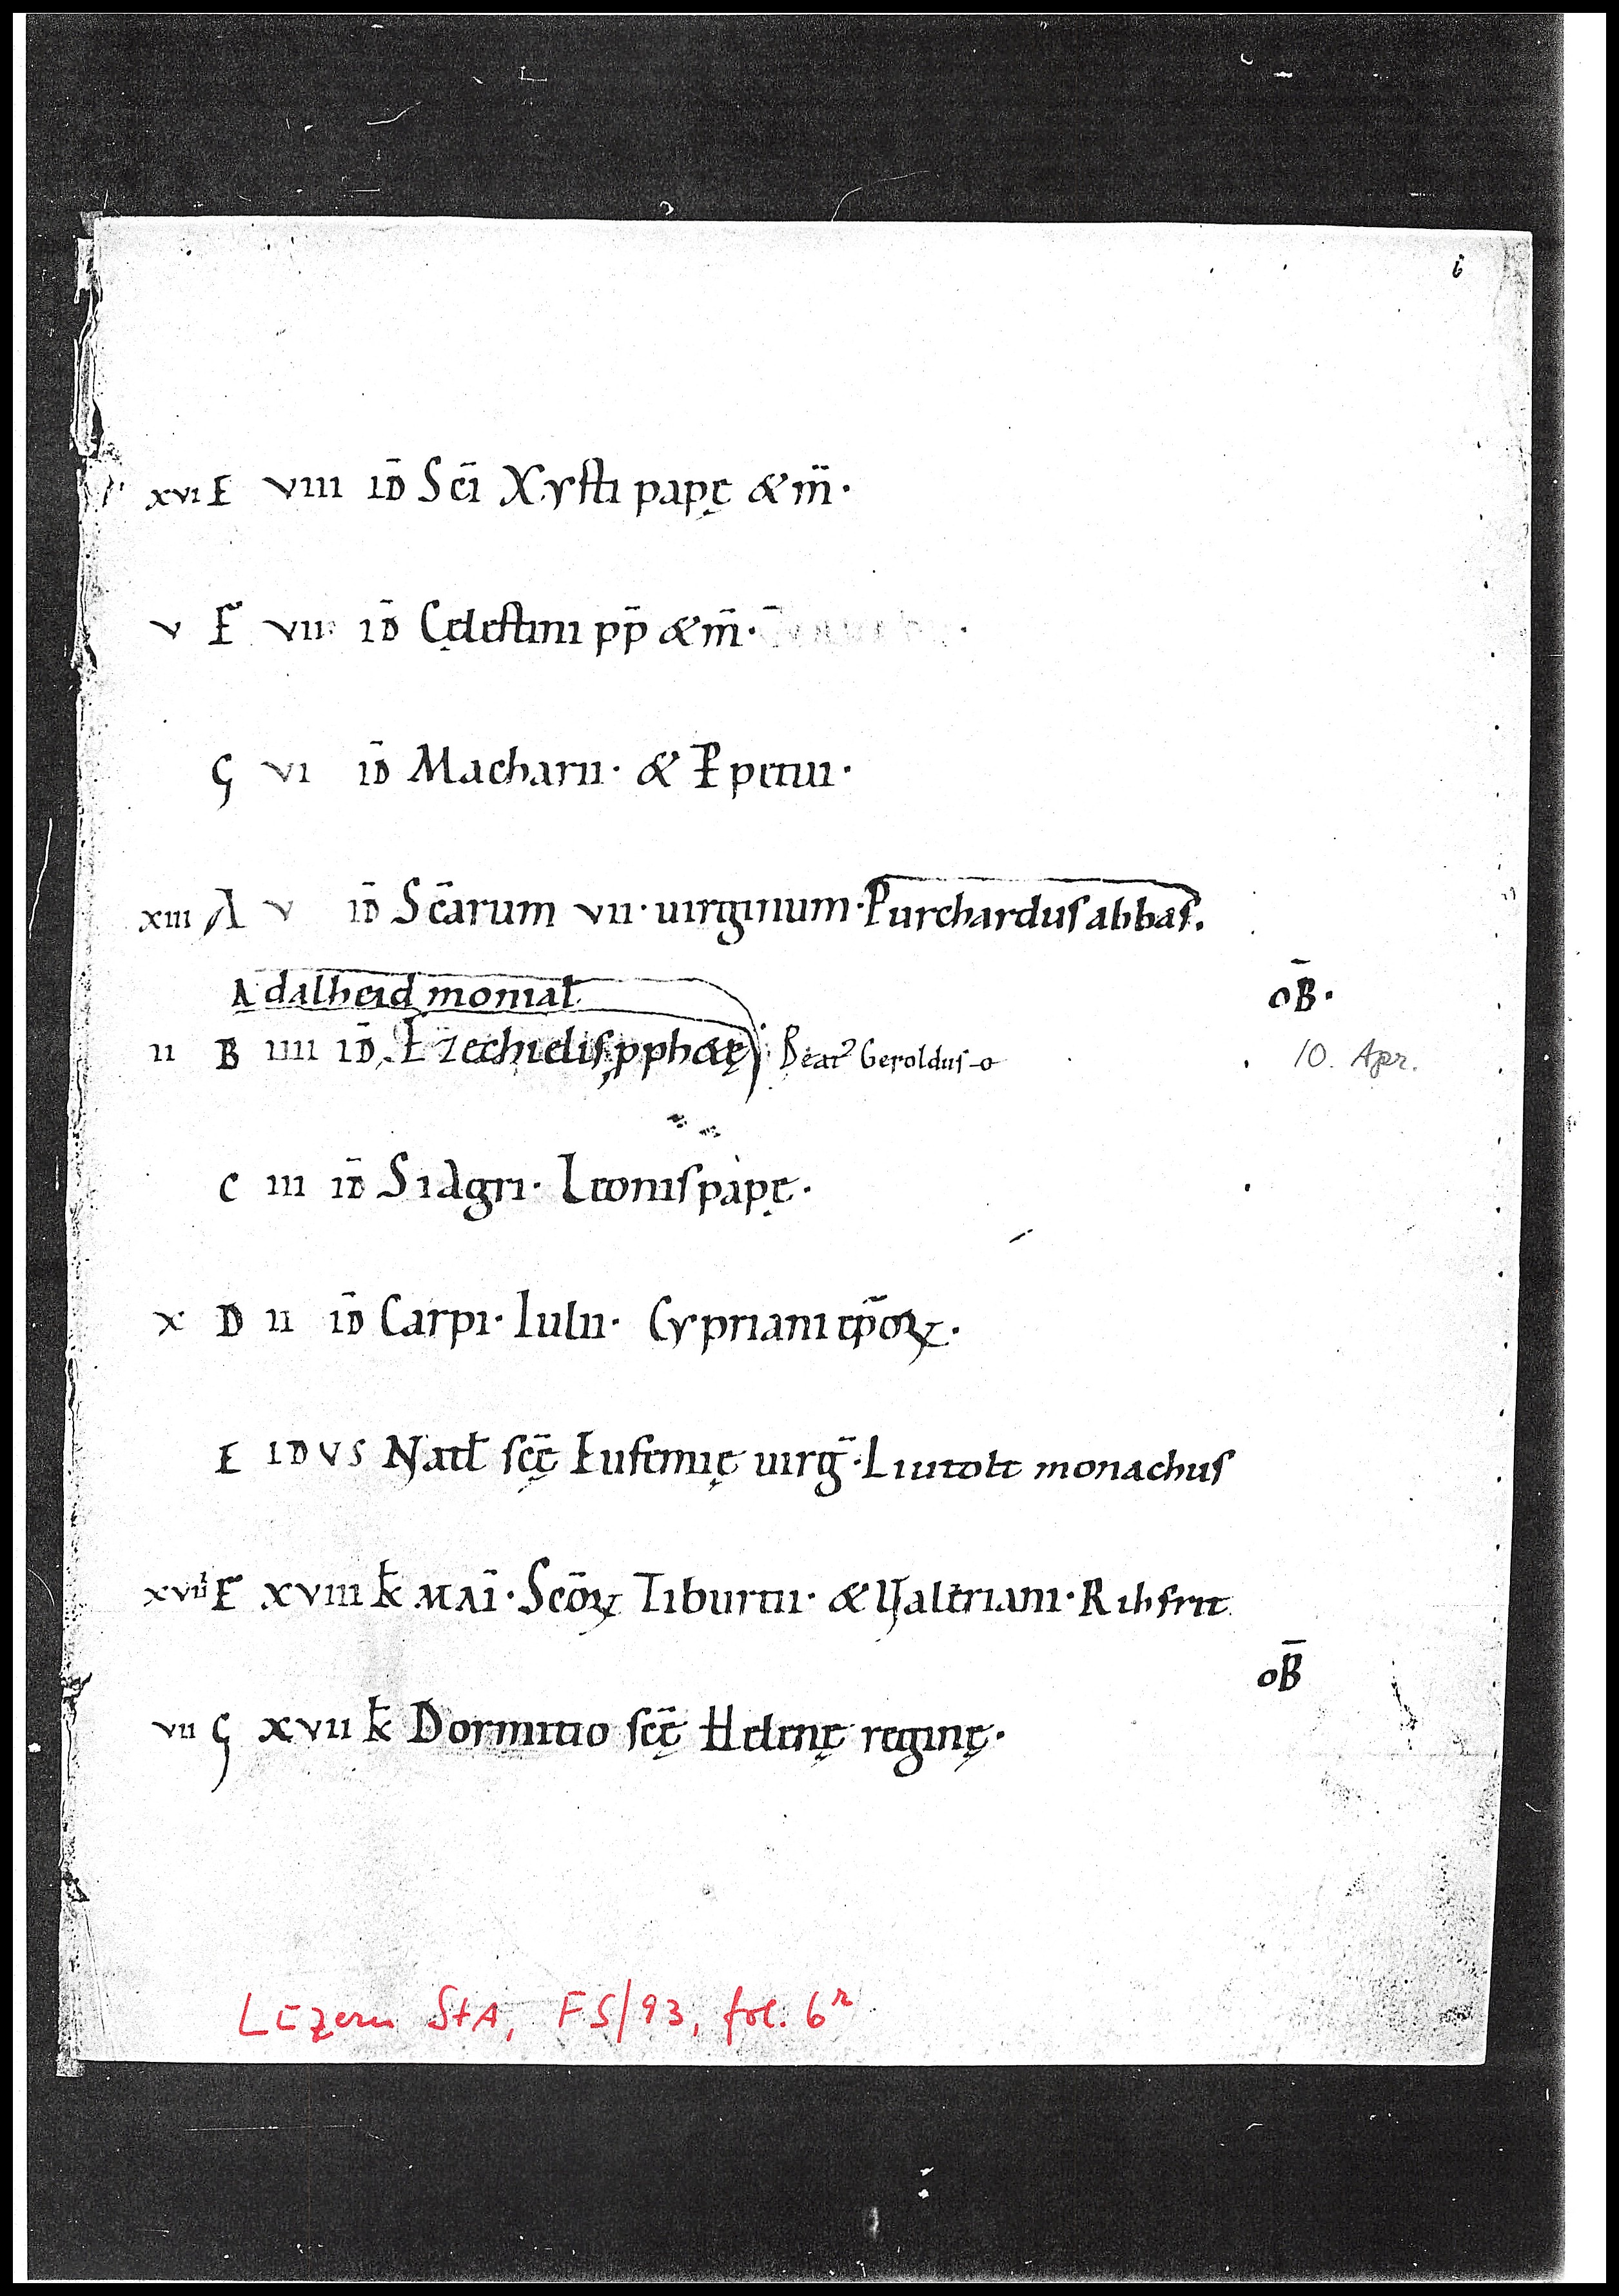 6
xvi E viii ID̄ Sc̄i Xysti papę & m̄·
v F vii ID̄ Cęlestini pp̄ & m̄·
G vi ID̄ Macharii· & P̄petui·
xiii A v ID̄ Sc̄arum vii· uirginum· Purchardus abbas.
Adalheid monial̄ oB̄·
ii B iiii ID̄ Ezechielis pphetę Beat᾿ Geroldus o 10. Apr.
C iii ID̄ Siagri· Leonis papę·
x D ii ID̄ Carpi· Iulii· Cypriani ep̄oꝝ·
E IDVS Natl̄ sc̄ę Eufemię uirḡ· Liutolt monachus
xviii F xviii k̄ MAI· Sc̄oꝝ Tiburtii· & Ualeriani· Rihfrit
oB̄
vii G xvii k̄ Dormitio sc̄ę Helenę reginę·
Luzern StA, FS/93, fol. 6r